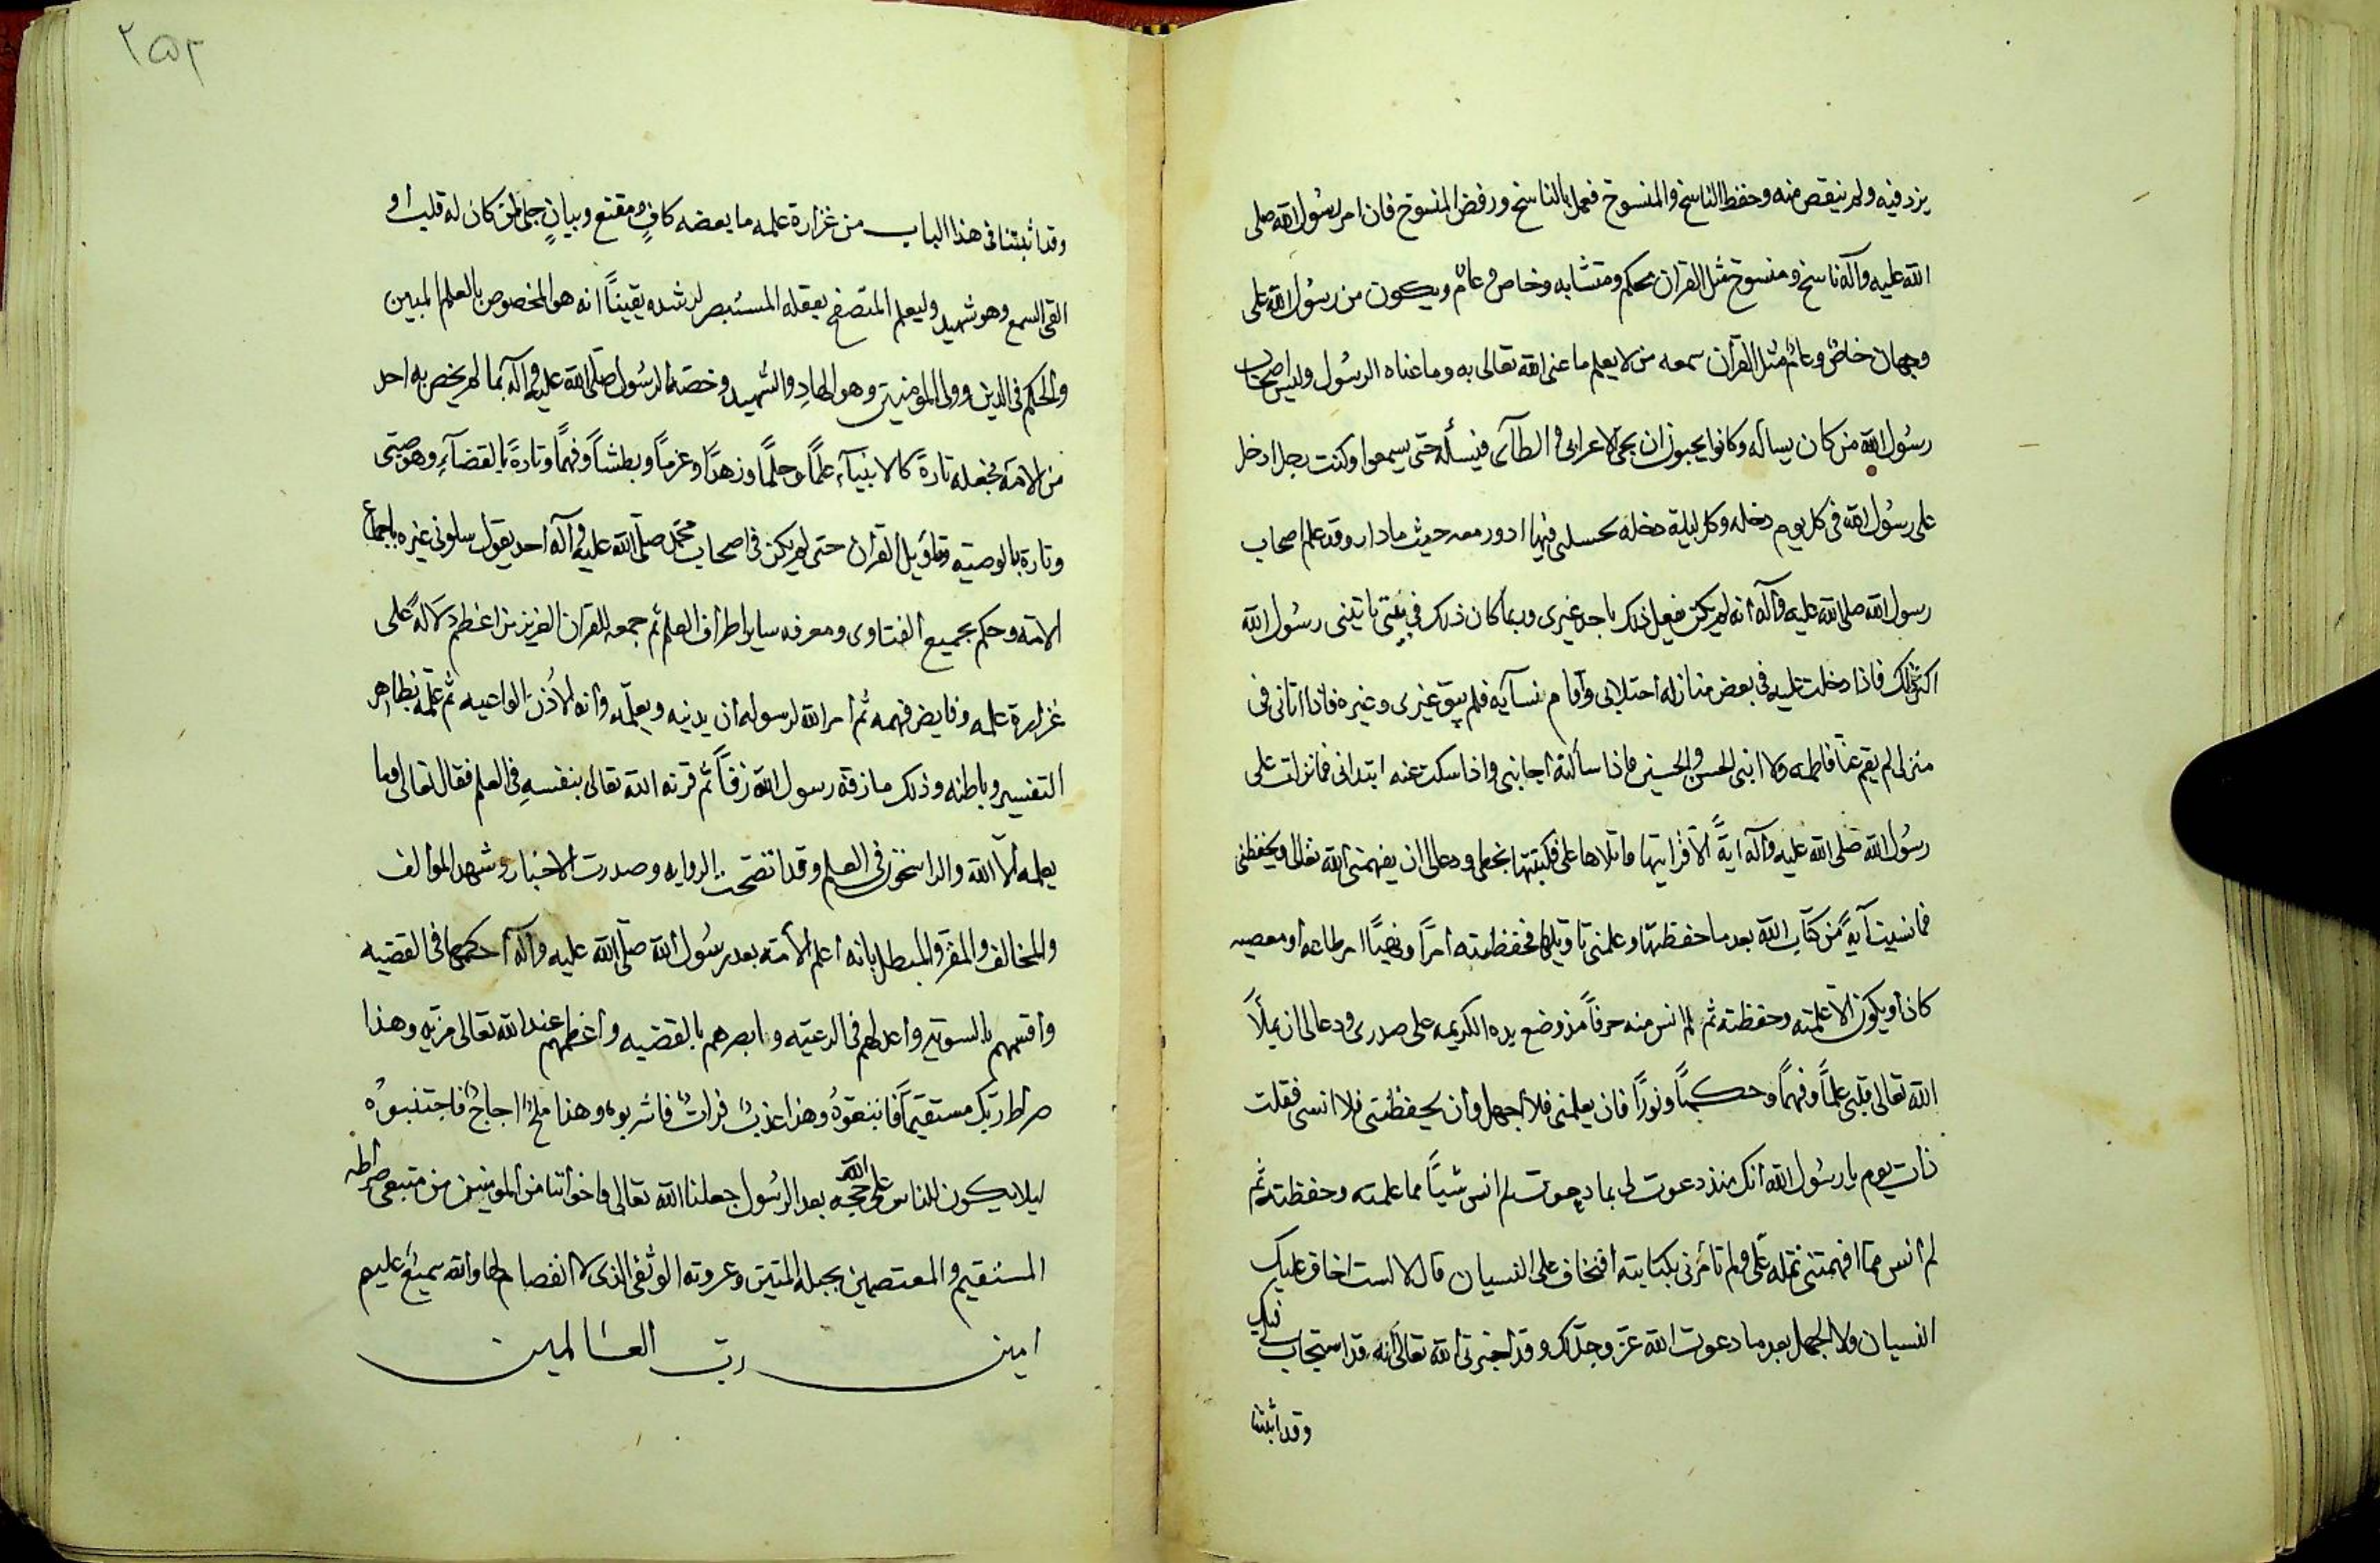 يزد فيه ولم ينقص منه وحفظ الناسخ والمنسوخ فعمل بالناسخ ورفض المنسوخ فان امر رسول الله صلى
الله عليه وآله ناسخ ومنسوخ مثل القران محكم ومتشابه وخاص وعام ويكون من رسول الله على
وجهان خاص وعام مثل القرآن سمعه من لا يعلم ما عنى الله تعالى به وما عناه الرسول وليس اصحاب
رسول الله من كان يساله وكانوا يحبون ان يجئ الاعرابى والطآى فيسأله حتى يسمعوا وكنت رجلا ادخل
على رسول الله فى كل يوم دخله وكل ليلة دخله فيها ادور معه حيث ما دار وقد علم اصحاب
رسول الله صلى الله عليه وآله انه لم يكن يفعل ذلك باحد غيرى وربما كان ذلك فى بيتى ياتينى رسول الله
اكثر ذلك فاذا دخلت عليه فى بعض منازله اختلابى واقام نسآيه فلم يبق غيرى وغيره فاذا اتانى فى
منزلى لم يقم عنا فاطمه ولا ابنى الحسن والحسين فاذا سألته اجابنى واذا سكت عنه ابتدانى فما نزلت على
رسول الله صلى الله عليه وآله آيةً الا قرانيها واتلاها على فكتبتها بخطى ودعا لى ان يفهمنى الله تعالى ويحفظنى
فما نسيت آيةً من كتاب الله بعد ما حفظتها وعلمنى تاويلها فحفظته امرًا ونهيًا امر طاعه او معصيه
كان او يكون الا علمته وحفظته ثم لم انس منه حرفًا مذ وضع يده الكريمه على صدرى ودعا لى ان يملأ
الله تعالى قلبى علمًا وفهمًا وحكمًا ونورًا فان يعلمنى فلا اجهل وان يحفظنى فلا انسى فقلت
ذات يوم يا رسول الله انك منذ دعوت لى بما دعوت لم انس شيئًا مما علمته وحفظته ثم
لم انس مما افهمتنى تمله على ولم تأمرنى بكتابته افتخاف على النسيان قال لا لست اخاف عليك
النسيان ولا الجهل بعد ما دعوت الله عز وجل لك وقد اخبرنى الله تعالى انه قد استجاب لى فيك
وقد اثبتنا
٢٥٢
وقد اثبتنا فى هذا الباب من غزارة علمه ما بعضه كافٍ ومقنع وبيانٍ جلى لمن كان له قلب او
القى السمع وهو شهيد وليعلم المتصفح بعقله المستبصر لرشده يقينًا انه هو المخصوص بالعلم المبين
والحكم فى الدين وولى المؤمنين وهو الهادِ والشهيد وخصه الرسول صلى الله عليه وآله بما لم يخص به احد
من الامة فجعله تارةً كالانبيآء علمًا وحلمًا وزهدًا وعزمًا وبطشًا وفهمًا وتارةً بالقضآء وهو صبى
وتارة بالوصيه وتاويل القرآن حتى لم يكن فى اصحاب محمد صلى الله عليه وآله احد يقول سلونى غيره باجماع
الامه وحكم بجميع الفتاوى ومعرفه ساير اطراف العلم ثم جمعه للقران العزيز من اعظم دلالةً على
غزارة علمه وفايض فهمه ثم امر الله لرسوله ان يدنيه ويعلمه وانه لاذن الواعيه ثم علمه بظاهر
التفسير وباطنه وذلك ما زقه رسول الله زقًا ثم قرنه الله تعالى بنفسه فى العلم فقال تعالى وما
يعلمه الا الله والراسخون فى العلم وقد اتضحت الروايه وصدرت الاخبار وشهد الموالف
والمخالف والمقر والمبطل بانه اعلم الامه بعد رسول الله صلى الله عليه وآله احكمها فى القضيه
واقسمهم بالسويه واعدلهم فى الرعيه وابصرهم بالقضيه واعظمهم عند الله تعالى مزيه وهذا
صراط ربك مستقيمًا فاتبعوهُ وهذا عذبٌ فراتٌ فاشربوه وهذا ملحٌ اجاجٌ فاجتنبوُه
ليلا يكون للناس على الله حجه بعد الرسول جعلنا الله تعالى واخواننا من المومنين من متبعى صراطه
المستقيم والمعتصمين بحبله المتين وعروته الوثقى الذى لا انفصام لها والله سميع عليم
امين رب العالمين